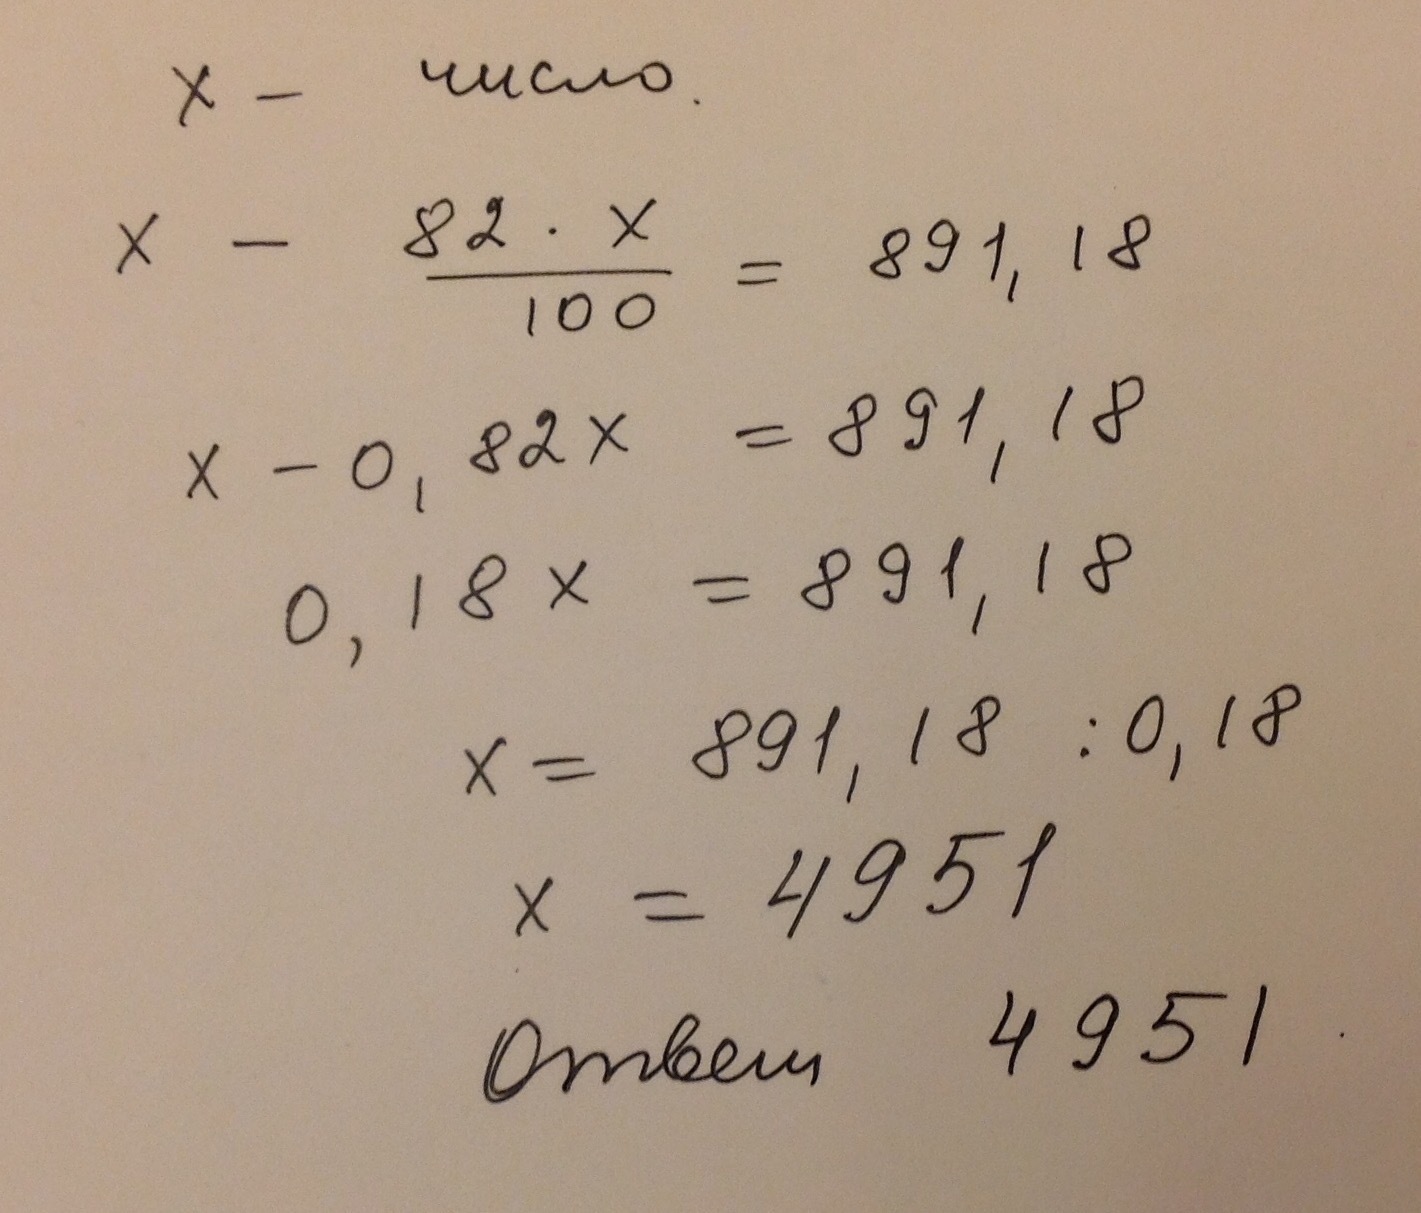 x - число.
x - 82 · x / 100 = 891,18
x - 0,82x = 891,18
0,18x = 891,18
x = 891,18 : 0,18
x = 4951
Ответ 4951.